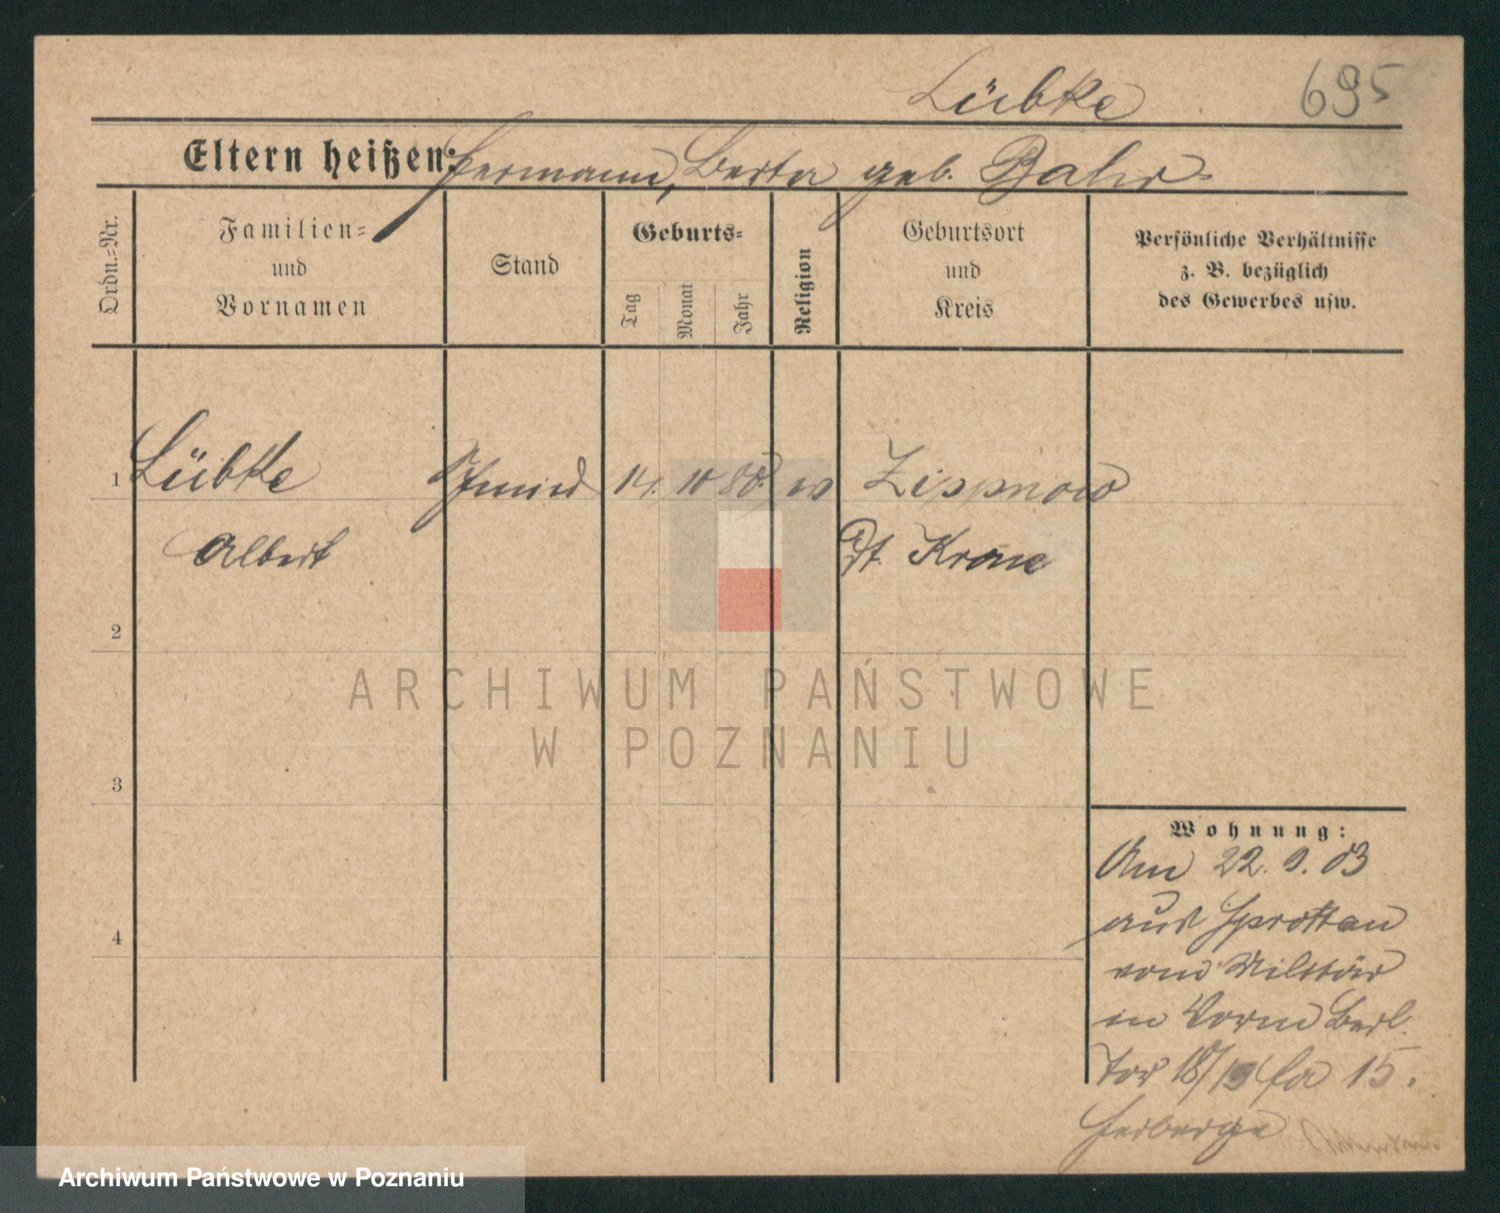 Lübke 695
Eltern heißen: Hermann, Berta geb. Bahr
Ordn.=Nr.
Familien=
und
Vornamen
Stand
Geburts=
Tag
Monat
Jahr
Religion
Geburtsort
und
Kreis
Persönliche Verhältnisse
z. B. bezüglich
des Gewerbes usw.
1 Lübke Schmied 14. 10 80. ev Zippnow
Albert Dt. Krone
2
3
4
Wohnung:
Am 22. 9. 03
aus Sprottau
vom Militär
in Vorm Berl.
Tor 18/19 15.
Herberge
ARCHIWUM PAŃSTWOWE
W POZNANIU
Archiwum Państwowe w Poznaniu